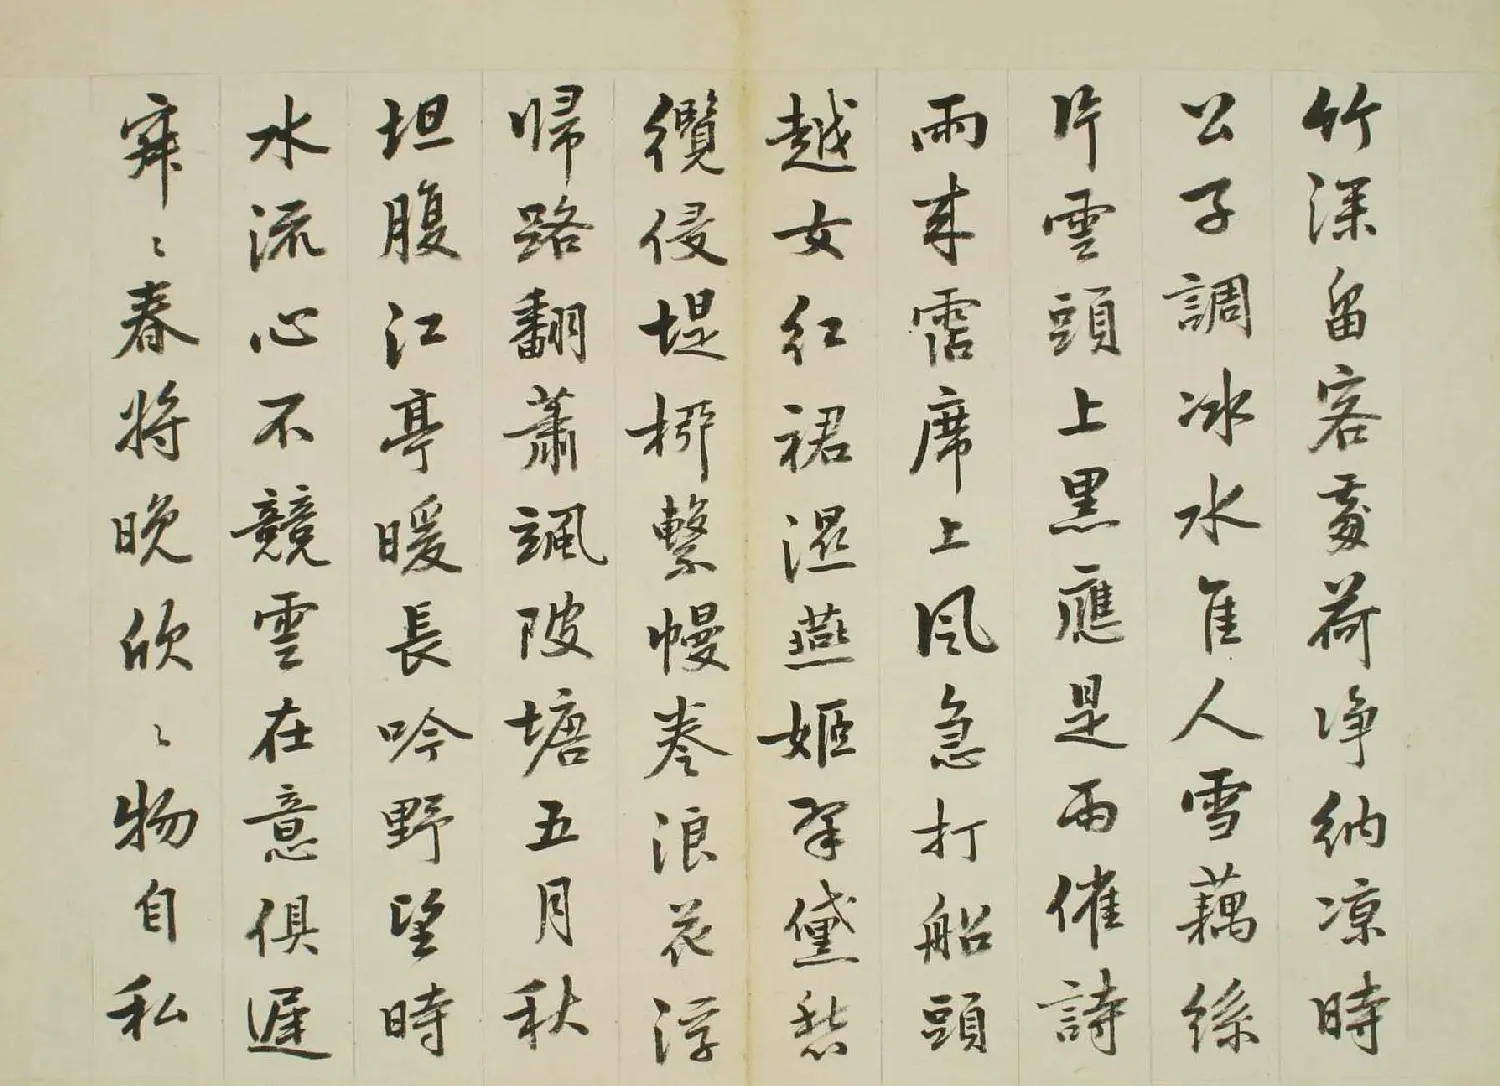 竹深留客處荷淨納凉時
公子調冰水隹人雪藕絲
片雲頭上黑應是雨催詩
雨來霑席上風急打船頭
越女紅裙濕燕姬翠黛愁
纜侵堤柳繫幔卷浪花浮
歸路翻蕭颯陂塘五月秋
坦腹江亭暖長吟野望時
水流心不競雲在意俱遲
寂〻春將晚欣〻物自私